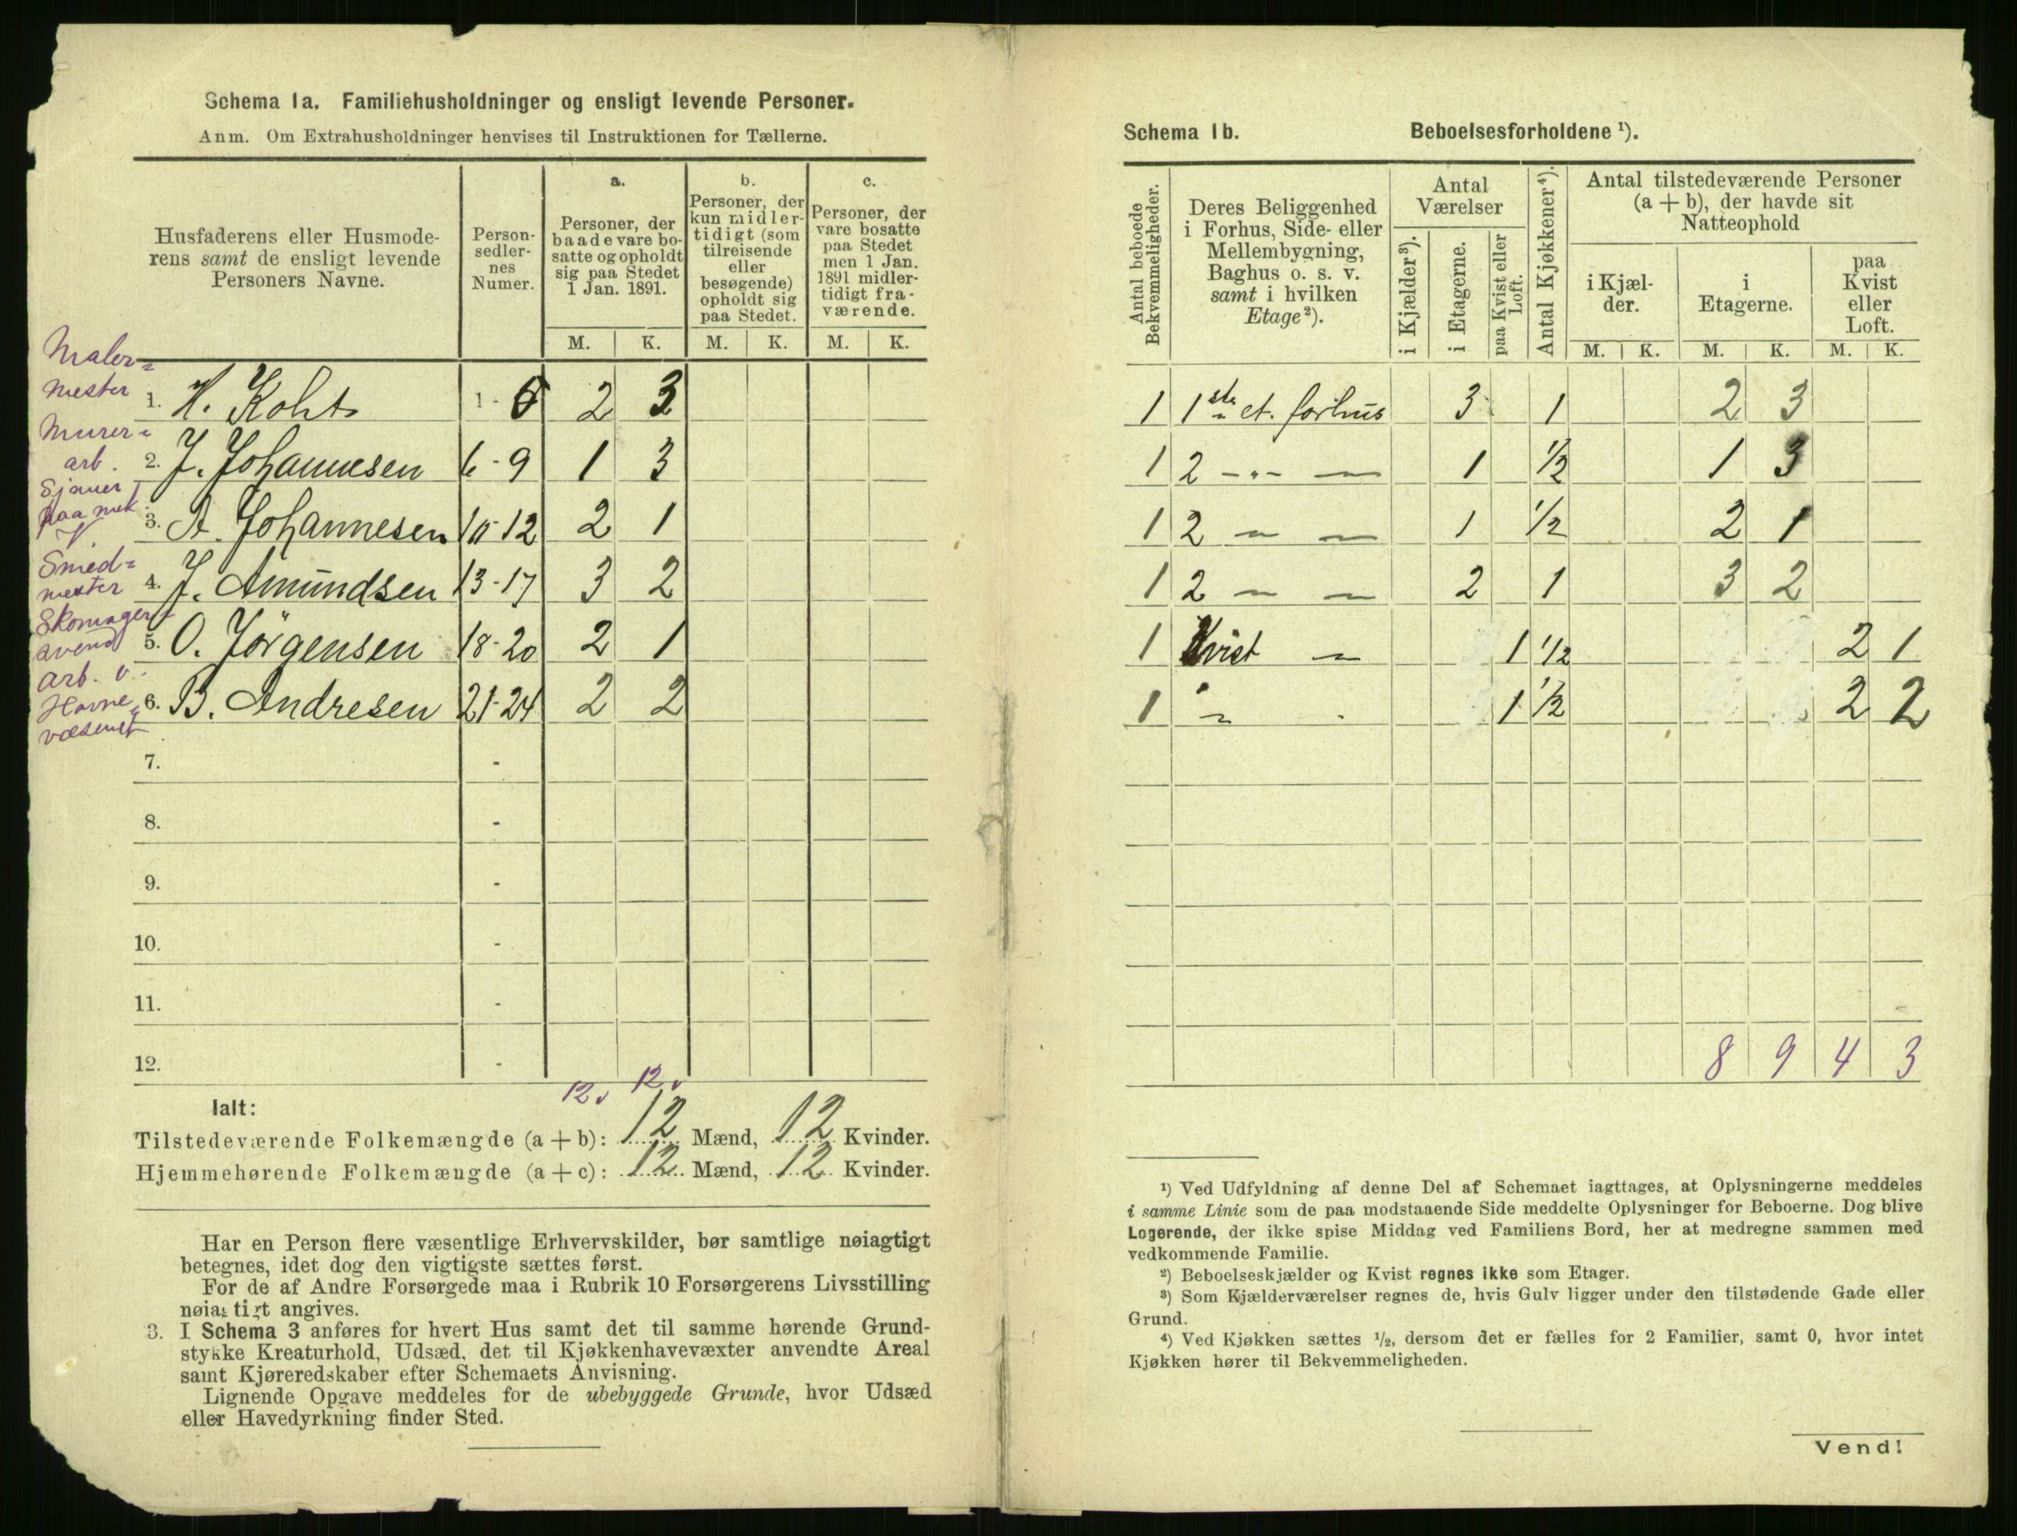 Schema 1a. Familiehusholdninger og ensligt levende Personer.
Anm. Om Extrahusholdninger henvises til Instruktionen for Tællerne.
Husfaderens eller Husmode-
rens samt de ensligt levende
Personers Navne.
Person-
sedler-
nes
Numer.
a.
Personer, der
baade vare bo-
satte og opholdt
sig paa Stedet
1 Jan. 1891.
b.
Personer, der
kun midler-
tidigt (som
tilreisende
eller
besøgende)
opholdt sig
paa Stedet.
c.
Personer, der
vare bosatte
paa Stedet
men 1 Jan.
1891 midler-
tidigt fra-
værende.
M. K. M. K. M. K.
Maler-
mester
1. H. Koht 1 - 5 2 3
Murer-
arb.
2. J. Johannesen 6 - 9 1 3
Sjauer
paa mek.
V.
3. A. Johannesen 10 - 12 2 1
Smed-
mester
4. J. Amundsen 13 - 17 3 2
Skomager-
svend
5. O. Jörgensen 18 - 20 2 1
arb. v.
Havne-
væsenet
6. B. Andresen 21 - 24 2 2
7. -
8. -
9. -
10. -
11. -
12. -
12 12
Ialt:
Tilstedeværende Folkemængde (a + b): 12 Mænd, 12 Kvinder.
Hjemmehørende Folkemængde (a + c): 12 Mænd, 12 Kvinder.
Har en Person flere væsentlige Erhvervskilder, bør samtlige nøiagtigt
betegnes, idet dog den vigtigste sættes først.
For de af Andre Forsørgede maa i Rubrik 10 Forsørgerens Livsstilling
nøiagtigt angives.
3. I Schema 3 anføres for hvert Hus samt det til samme hørende Grund-
stykke Kreaturhold, Udsæd, det til Kjøkkenhavevæxter anvendte Areal
samt Kjøreredskaber efter Schemaets Anvisning.
Lignende Opgave meddeles for de ubebyggede Grunde, hvor Udsæd
eller Havedyrkning finder Sted.
Schema 1b. Beboelsesforholdene ¹).
Antal beboede
Bekvemmeligheder.
Deres Beliggenhed
i Forhus, Side- eller
Mellembygning,
Baghus o. s. v.
samt i hvilken
Etage ²).
Antal
Værelser
i Kjælder ³).
i Etagerne.
paa Kvist eller
Loft.
Antal Kjøkkener ⁴).
Antal tilstedeværende Personer
(a + b), der havde sit
Natteophold
i Kjæl-
der.
i
Etagerne.
paa
Kvist
eller
Loft.
M. K. M. K. M. K.
1 1ste et. forhus 3 1 2 3
1 2 - " - — 1 1/2 1 3
1 2 — — 1 1/2 2 1
1 2 — — 2 1 3 2
1 Kvist — 1 1/2 2 1
1 " 1 1/2 2 2
8 9 4 3
¹) Ved Udfyldning af denne Del af Schemaet iagttages, at Oplysningerne meddeles
i samme Linie som de paa modstaaende Side meddelte Oplysninger for Beboerne. Dog blive
Logerende, der ikke spise Middag ved Familiens Bord, her at medregne sammen med
vedkommende Familie.
²) Beboelseskjælder og Kvist regnes ikke som Etager.
³) Som Kjælderværelser regnes de, hvis Gulv ligger under den tilstødende Gade eller
Grund.
⁴) Ved Kjøkken sættes ½, dersom det er fælles for 2 Familier, samt 0, hvor intet
Kjøkken hører til Bekvemmeligheden.
Vend!